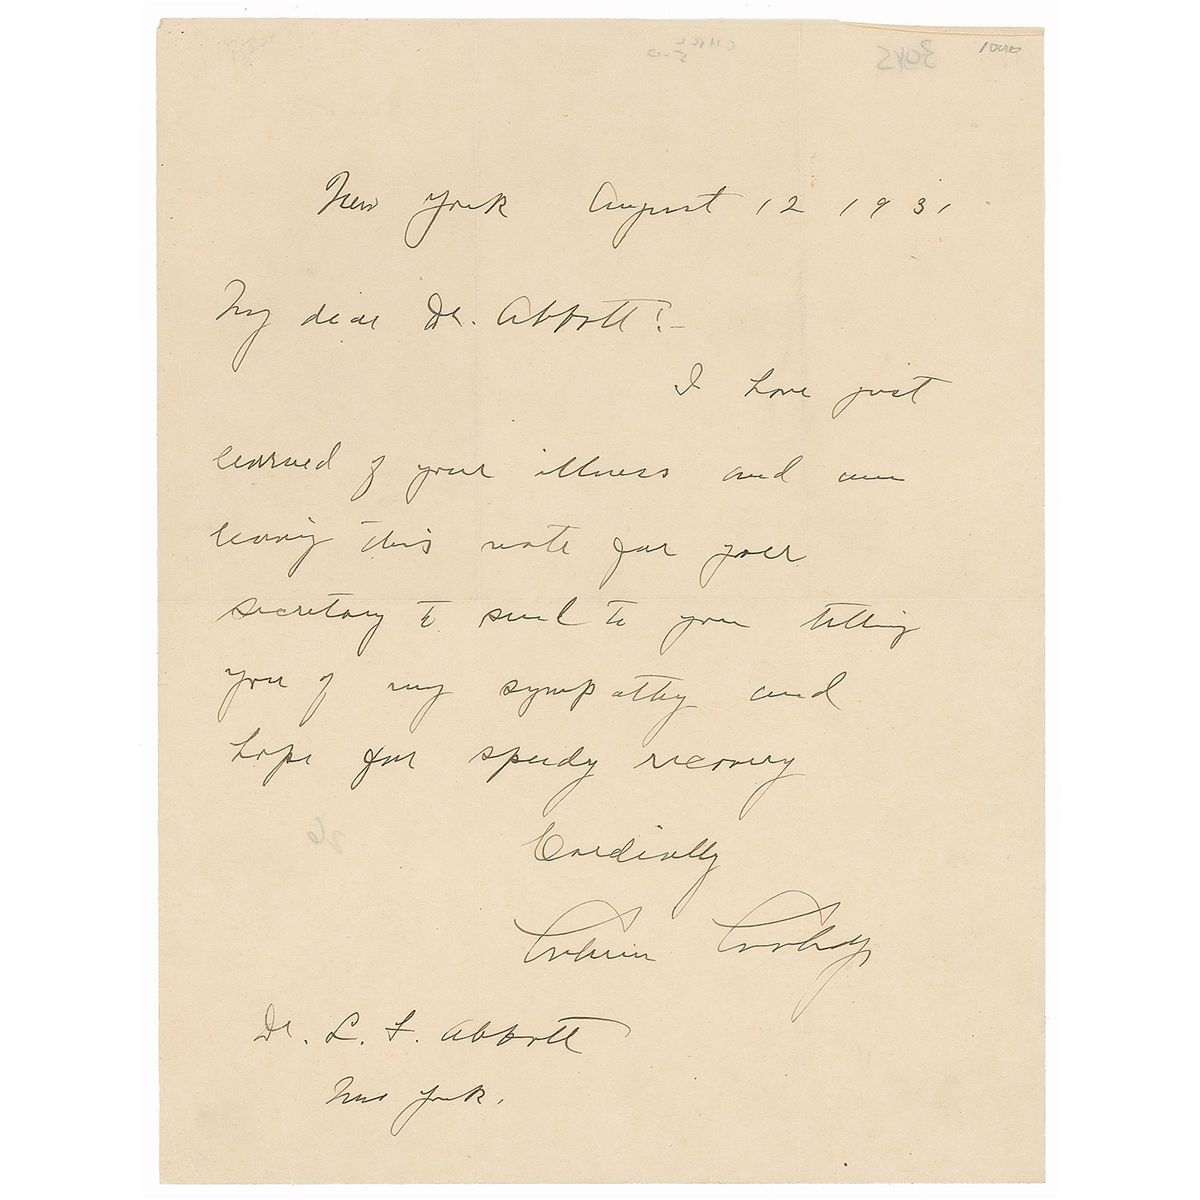 New York August 12 1931
My dear Dr. Abbott:-
I have just
learned of your illness and am
leaving this note for your
secretary to send to you telling
you of my sympathy and
hope for speedy recovery
Cordially
Calvin Coolidge
Dr. L. F. Abbott
New York.